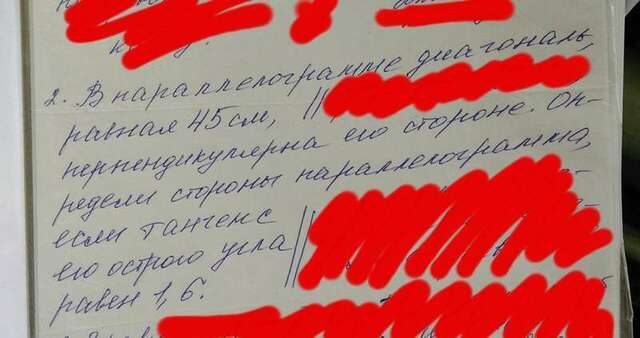 2. В параллелограмме диагональ,
равная 45 см,
перпендикулярна его стороне. Оп-
редели стороны параллелограмма,
если тангенс
его острого угла
равен 1,6.